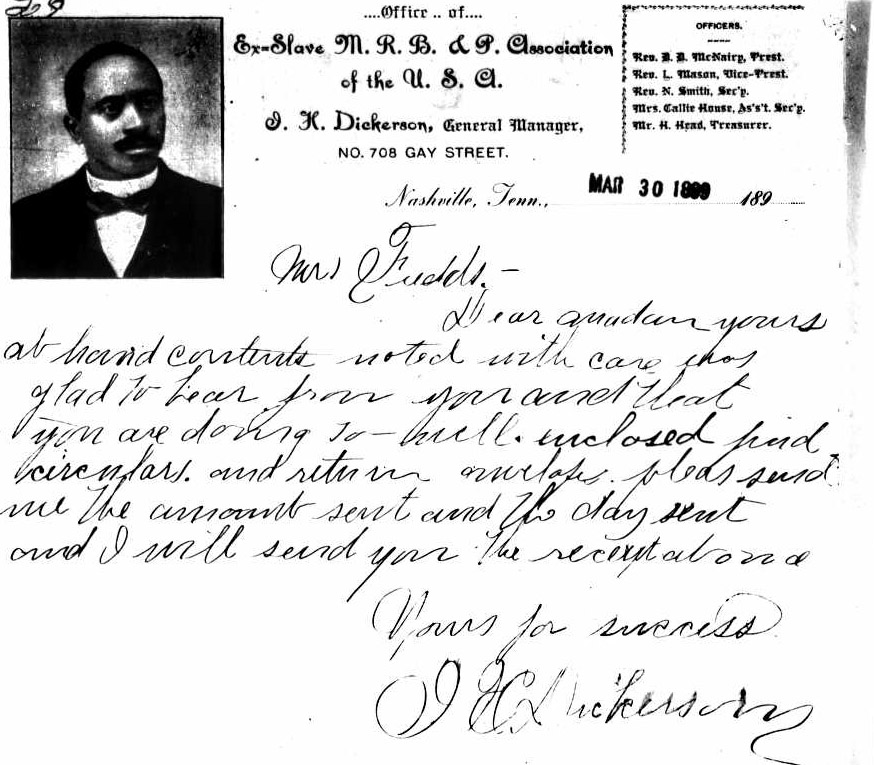 ....Office .. of....
Ex-Slave M. R. B. & P. Association
of the U. S. A.
I. H. Dickerson, General Manager,
NO. 708 GAY STREET.
OFFICERS.
Rev. D. D. McNairy, Prest.
Rev. L. Mason, Vice-Prest.
Rev. N. Smith, Sec'y.
Mrs. Callie House, As's't. Sec'y.
Mr. H. Head, Treasurer.
Nashville, Tenn., MAR 30 1899 189
Mrs
Dear madam yours
at hand contents noted with care was
glad to hear from you and that
you are doing so well. enclosed find
circulars. and return envelope. pleas send
me the amount sent and the day sent
and I will send you the recept at once
Yours for success
I H Dickerson